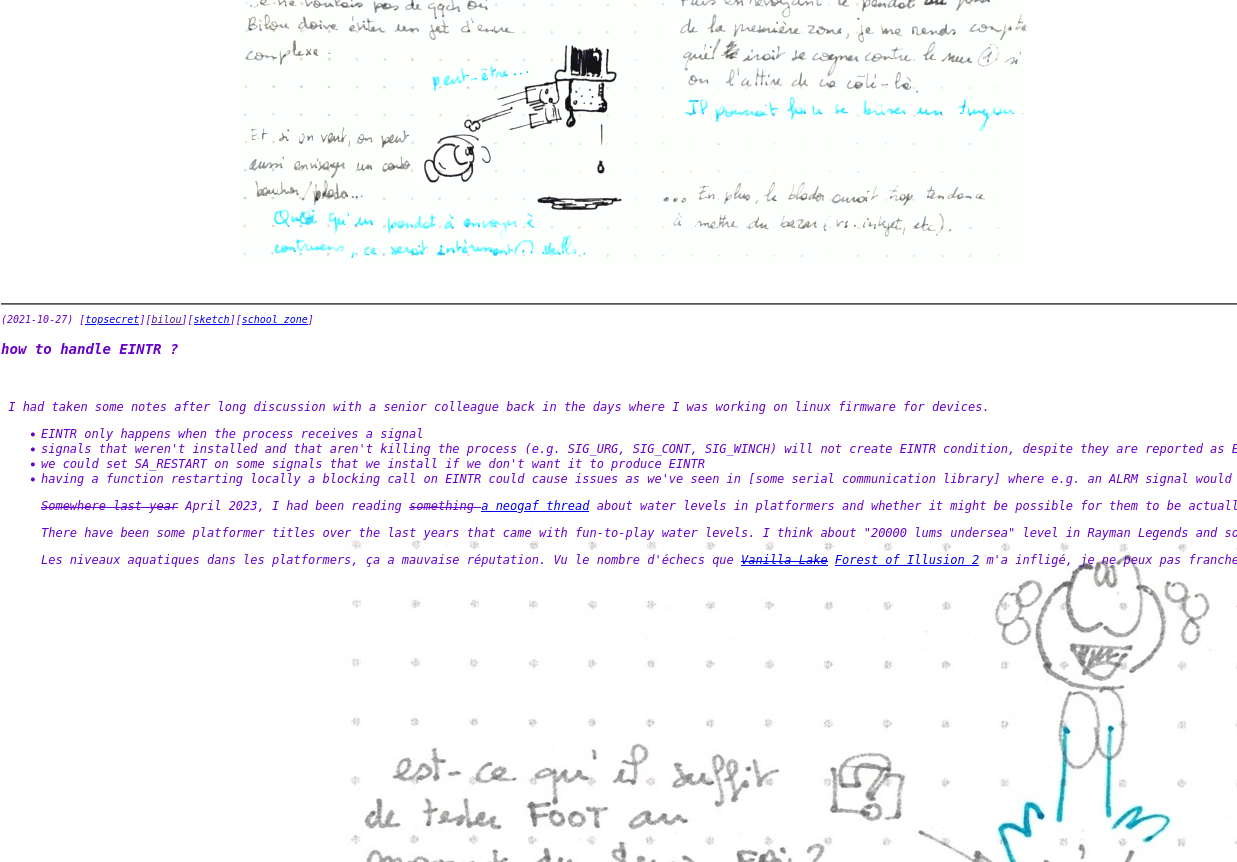 Je ne voulais pas de qqch où
Bilou doive éviter un jet d'encre
complexe :
peut-être...
Et si on veut, on peut
aussi envisager un
boucher/blador...
Quoi qu'un pendat à envoyer à
contresens, ce serait skills.
de la première zone, je me rends compte
qu'il irait se cogner contre le mur ① si
on l'attire de ce côté-là.
Il pourrait faire se briser un tuyau
... En plus, le blador aurait trop tendance
à mettre du bazar (vs. inkjet, etc).
(2021-10-27) [topsecret][bilou][sketch][school zone]
how to handle EINTR ?
I had taken some notes after long discussion with a senior colleague back in the days where I was working on linux firmware for devices.
• EINTR only happens when the process receives a signal
• signals that weren't installed and that aren't killing the process (e.g. SIG_URG, SIG_CONT, SIG_WINCH) will not create EINTR condition, despite they are reported as E
• we could set SA_RESTART on some signals that we install if we don't want it to produce EINTR
• having a function restarting locally a blocking call on EINTR could cause issues as we've seen in [some serial communication library] where e.g. an ALRM signal would
Somewhere last year April 2023, I had been reading something a neogaf thread about water levels in platformers and whether it might be possible for them to be actuall
There have been some platformer titles over the last years that came with fun-to-play water levels. I think about "20000 lums undersea" level in Rayman Legends and so
Les niveaux aquatiques dans les platformers, ça a mauvaise réputation. Vu le nombre d'échecs que Vanilla Lake Forest of Illusion 2 m'a infligé, je ne peux pas franche
est-ce qu'il suffit
de tester FOOT au
?